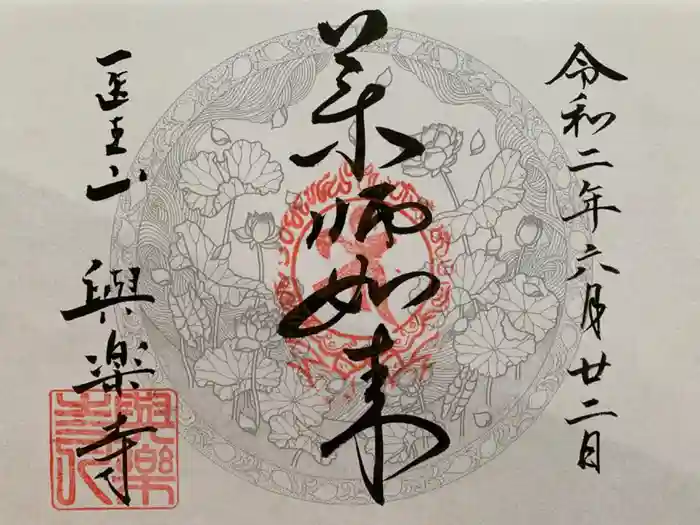 令和二年六月廿二日
薬師如来
医王山
興楽寺